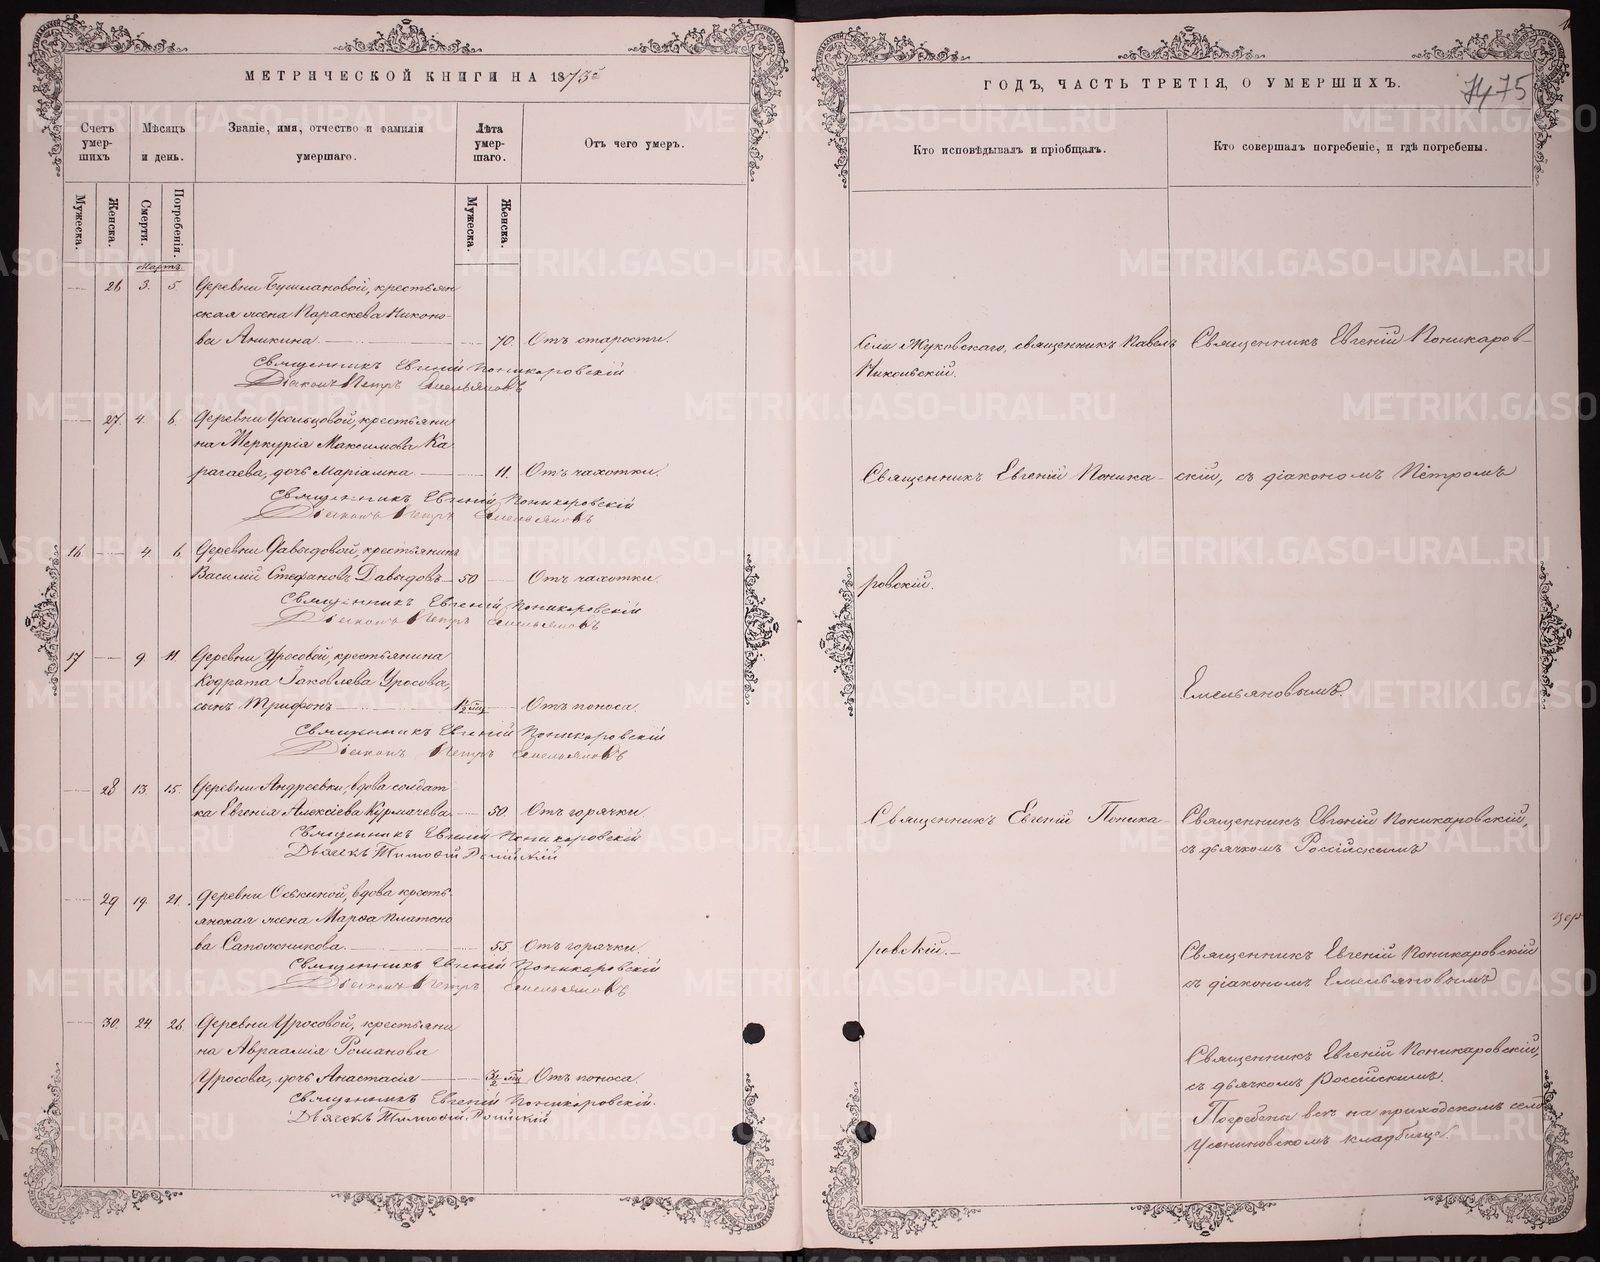 МЕТРИЧЕСКОЙ КНИГИ НА 1873й
Счетъ умершихъ
Мѣсяцъ и день.
Званіе, имя, отчество и фамилія умершаго.
Лѣта умершаго.
Отъ чего умеръ.
Мужеска.
Женска.
Смерти.
Погребенія.
Мужеска.
Женска.
Мартъ
26 3. 5. Деревни Бушлановой, крестьян
ская жена Параскева Никоно-
ва Аникина. 70. Отъ старости.
Священникъ Евгеній Поникаровскій
Діаконъ Петръ Емельяновъ
27. 4. 6. Деревни Усольцовой, крестьяни
на Меркурія Максимова Ка
рагаева, дочь Маріамна. 11. Отъ чахотки.
Священникъ Евгеній Поникаровскій
Діаконъ Петръ Емельяновъ
16 4. 6. Деревни Давыдовой, крестьянинъ
Василій Стефановъ Давыдовъ 50 Отъ чахотки.
Священникъ Евгеній Поникаровскій
Діаконъ Петръ Емельяновъ
17 9. 11. Деревни Уросовой, крестьянина
Кодрата Іаковлева Уросова,
сынъ Трифонъ Отъ поноса.
Священникъ Евгеній Поникаровскій
Діаконъ Петръ Емельяновъ
28 13. 15. Деревни Андреевки, вдова солдат
ка Евгенія Алексіева Курмачева. 50. Отъ горячки
Священникъ Евгеній Поникаровскій
Дьячекъ Тимофій Россійскій
29 19. 21. Деревни Оськиной, вдова кресть-
янская жена Марѳа Платоно
ва Сапожникова. 55 Отъ горячки.
Священникъ Евгеній Поникаровскій
Діаконъ Петръ Емельяновъ
30. 24. 26. Деревни Уросовой, крестьяни
на Авраамія Романова
Уросова, дочь Анастасія Отъ поноса.
Священникъ Евгеній Поникаровскій.
Дьячекъ Тимофій Россійскій
ГОДЪ, ЧАСТЬ ТРЕТІЯ, О УМЕРШИХЪ.
7475
Кто исповѣдывалъ и пріобщалъ.
Кто совершалъ погребеніе, и гдѣ погребены.
Села Жуковскаго, священникъ Павелъ
Никольскій.
Священникъ Евгеній Поника-
ровскій.
Священникъ Евгеній Поника-
ровскій.
Священникъ Евгеній Поникаров-
скій, съ діакономъ Петромъ
Емельяновымъ
Священникъ Евгеній Поникаровскій,
съ дьячкомъ Россійскимъ
Священникъ Евгеній Поникаровскій
съ діакономъ Емельяновымъ
Священникъ Евгеній Поникаровскій,
съ дьячкомъ Россійскимъ.
Погребены всѣ на приходскомъ селѣ
кладбище.
METRIKI.GASO-URAL.RU